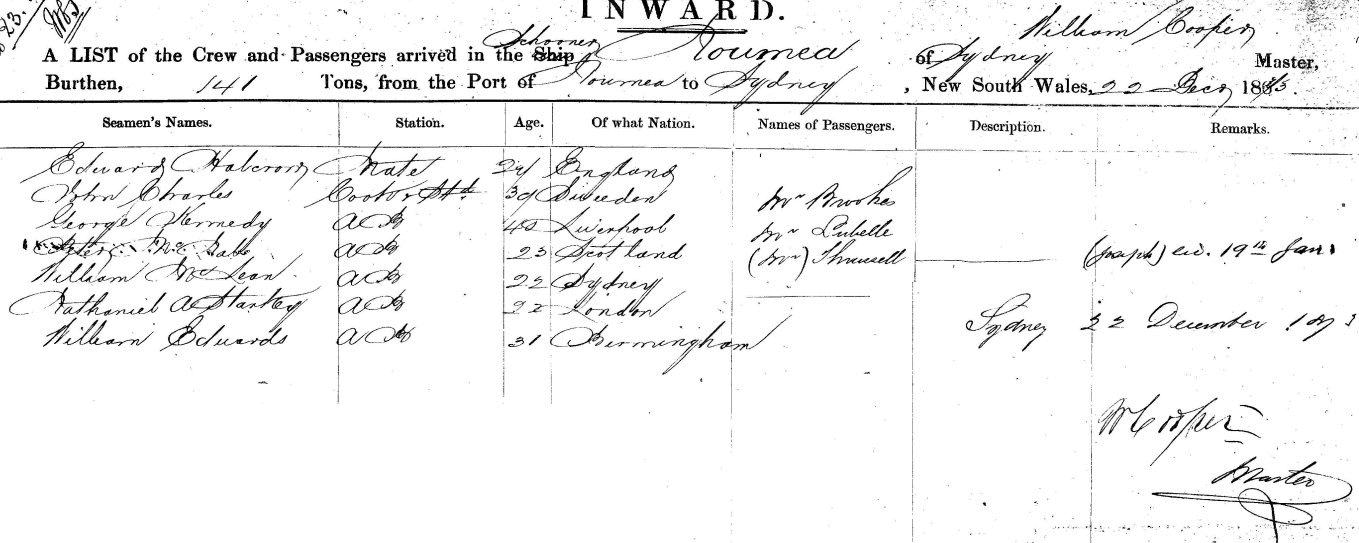 INWARD.
William Cooper
A LIST of the Crew and Passengers arrived in the Ship Schooner Noumea of Sydney Master,
Burthen, 141 Tons, from the Port of Noumea to Sydney, New South Wales, 22 Decr 1873.
Seamen's Names. Station. Age. Of what Nation. Names of Passengers. Description. Remarks.
Edward Mate 24 England
John Charles Cook & Std. 39 Sweden Mr Brookes
George Kennedy AB 40 Liverpool Mr Lubelle
Peter Mc Cabe AB 23 Scotland (Mr) (Joseph) 19th Jan
William Mc Lean AB 22 Sydney
Nathaniel A Starkey AB 22 London
William Edwards AB 31 Birmingham Sydney 22 December 1873
W Cooper
Master